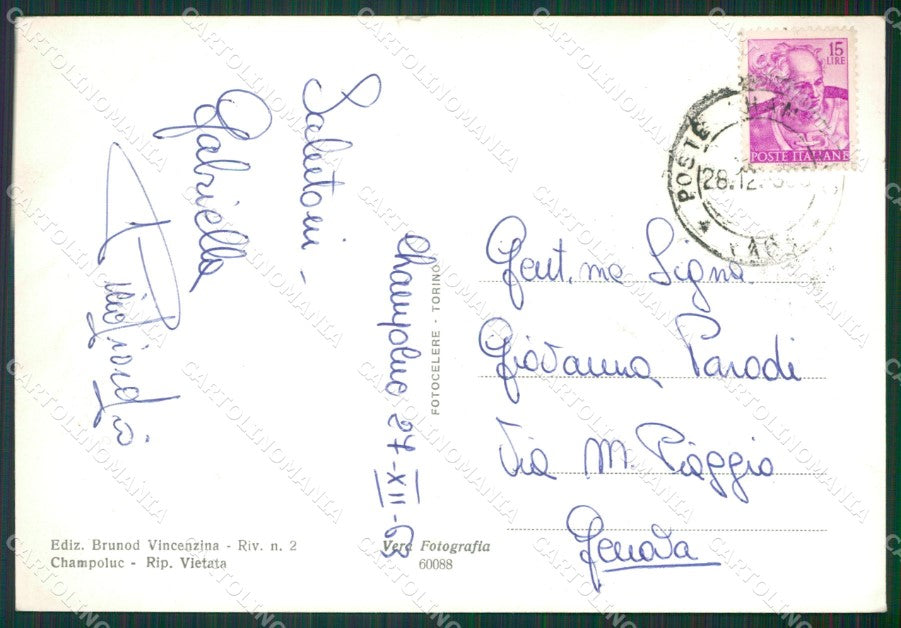 Salutoni -
Gabriella
Champoluc 27-XII-63
15
LIRE
POSTE ITALIANE
POSTE
28.12.
Gent.ma Signa
Giovanna Parodi
Via M. Piaggio
Genova
FOTOCELERE - TORINO
Ediz. Brunod Vincenzina - Riv. n. 2
Champoluc - Rip. Vietata
Vera Fotografia
60088
CARTOLINOMANIA